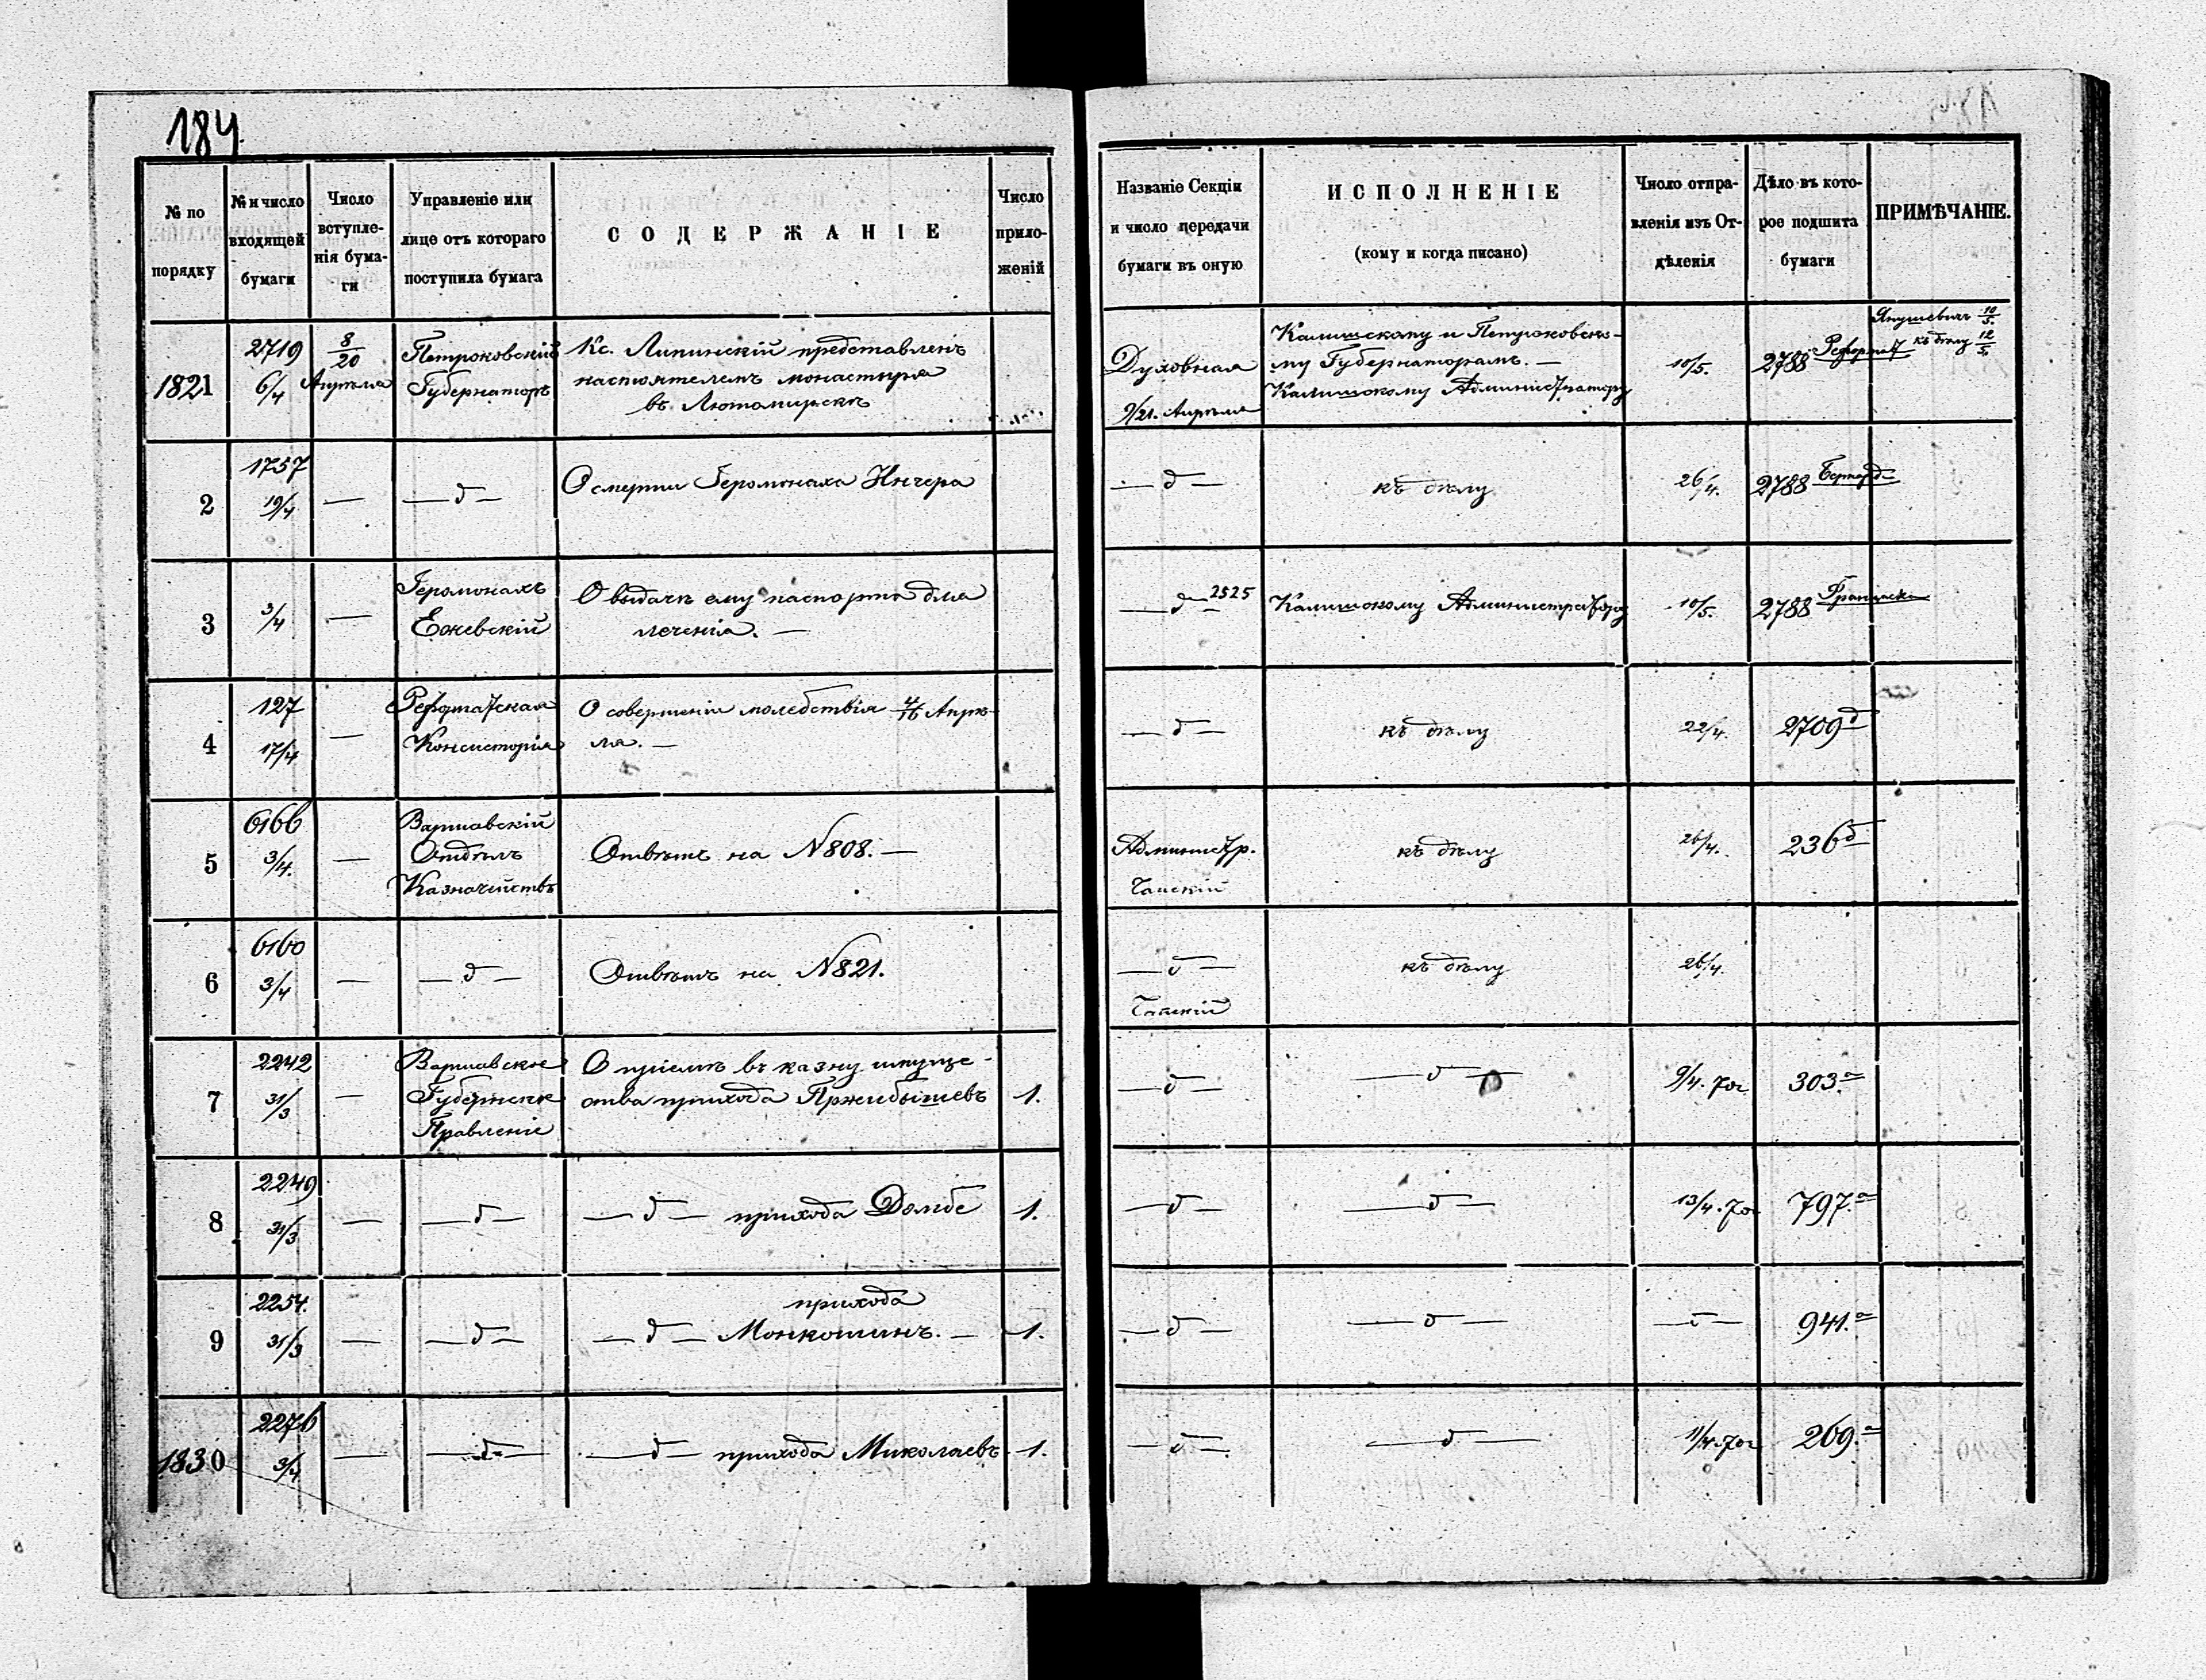 184.
№ по порядку
№ и число входящей бумаги
Число вступленія бумаги
Управленіе или лице отъ котораго поступила бумага
СОДЕРЖАНІЕ
Число приложеній
Названіе Секціи и число передачи бумаги въ оную
ИСПОЛНЕНІЕ
(кому и когда писано)
Число отправленія изъ Отдѣленія
Дѣло въ которое подшита бумаги
ПРИМѢЧАНІЕ.
1821
2719
6/4
8/20
Апрѣля
Петроковскій
Губернаторъ
Кс. Липинскій представленъ
настоятелемъ монастыря
въ Лютомирскѣ
Духовная
9/21. Апрѣля
Калишскому и Петроковско-
му Губернаторамъ. —
Калишскому Администратору
10/5.
2788
Янушевичъ 10/5.
къ дѣлу 12/5.
2
1757
19/4
—
— д —
О смерти Іеромонаха
— д —
къ дѣлу
26/4.
2788
Бернард
3
3/4
—
Іеромонахъ
Ежевскій
О выдачѣ ему паспорта для
леченія. —
— д — 2525
Калишскому Администратору
10/5.
2788
4
127
17/4
—
Реформатская
Консисторія
О совершеніи молебствія 4/16 Апрѣ-
ля. —
— д —
къ дѣлу
22/4.
2709 д
5
6166
3/4.
—
Варшавскій
Отдѣлъ
Казначействъ
Отвѣтъ на N 808. —
Администр.
къ дѣлу
26/4.
236 д
6
6160
3/4
—
— д —
Отвѣтъ на N 821.
— д —
къ дѣлу
26/4.
7
2242
31/3
—
Варшавское
Губернское
Правленіе
О пріемѣ въ казну имуще-
ства прихода Пржибышевъ
1.
— д —
— д —
9/4. 70г
303. а
8
2249
31/3
—
— д —
— д — прихода Домбе
1.
— д —
— д —
13/4. 70г
797. а
9
2254.
31/3
—
— д —
прихода
— д — Монкошинъ. —
1.
— д —
— д —
— д —
941. а
1830
2276
3/4
—
— д —
— д — прихода Миколаевъ
1.
— д —
— д —
11/4. 70г
269. а